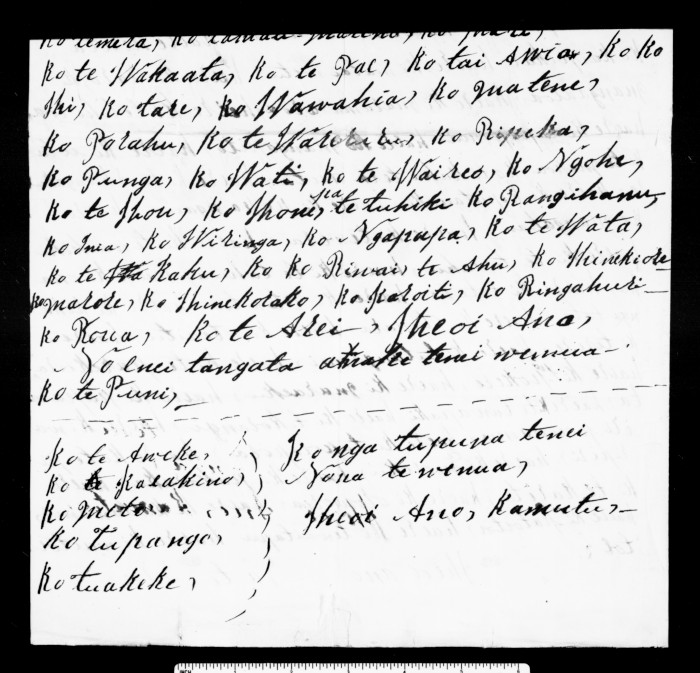 Ko temera, Ko
Ko te Wakaata, Ko te Pae, Ko tai Awia, Ko Ko
Ihi, Ko tare, Ko Wawahia, Ko Matene,
Ko Porahu, Ko te Ko Ripeka,
Ko Punga, Ko Wati, Ko te Waireo, Ko Ngohe,
Ko te Hou, Ko Hone, pa te tuhiki Ko Rangihanu,
Ko Inia, Ko Wiringa, Ko Ngapapa, Ko te Wata,
Ko te Kaku, Ko Ko Riwai, te Ahu, Ko Hinekiore
Ko marore, Ko Hinekorako, Ko Karoiti, Ko Ringahuri-
Ko Roua, Ko te Arei, Heoi Ano,
No enei tangata tenei wenua-
Ko te Puni,-
Ko te Aweke,
Ko te Karakino,
Ko
Ko tupango,
Ko tuakeke,
Ko nga tupuna tenei
Nona te wenua,
Heoi Ano, Kamutu,-